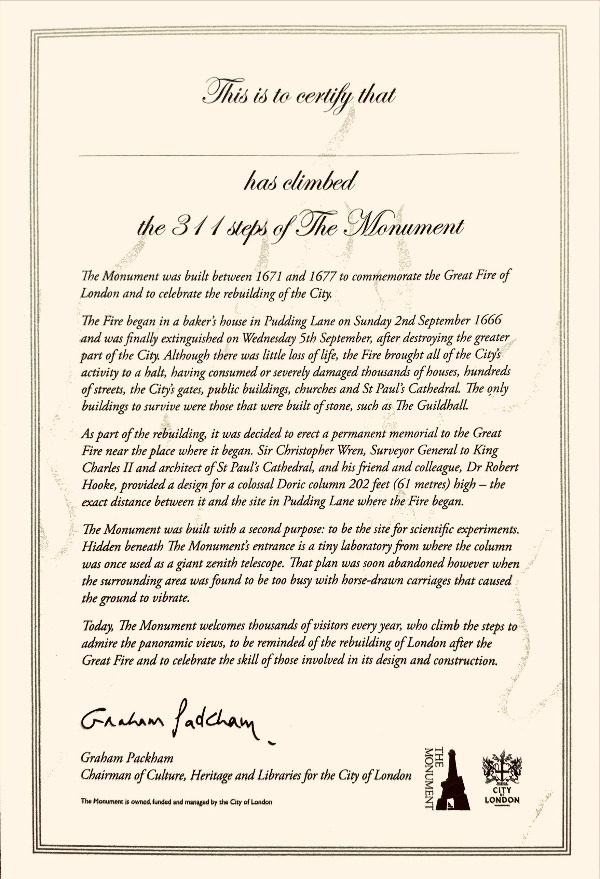 This is to certify that
has climbed
the 311 steps of The Monument
The Monument was built between 1671 and 1677 to commemorate the Great Fire of
London and to celebrate the rebuilding of the City.
The Fire began in a baker's house in Pudding Lane on Sunday 2nd September 1666
and was finally extinguished on Wednesday 5th September, after destroying the greater
part of the City. Although there was little loss of life, the Fire brought all of the City's
activity to a halt, having consumed or severely damaged thousands of houses, hundreds
of streets, the City's gates, public buildings, churches and St Paul's Cathedral. The only
buildings to survive were those that were built of stone, such as The Guildhall.
As part of the rebuilding, it was decided to erect a permanent memorial to the Great
Fire near the place where it began. Sir Christopher Wren, Surveyor General to King
Charles II and architect of St Paul's Cathedral, and his friend and colleague, Dr Robert
Hooke, provided a design for a colossal Doric column 202 feet (61 metres) high – the
exact distance between it and the site in Pudding Lane where the Fire began.
The Monument was built with a second purpose: to be the site for scientific experiments.
Hidden beneath The Monument's entrance is a tiny laboratory from where the column
was once used as a giant zenith telescope. That plan was soon abandoned however when
the surrounding area was found to be too busy with horse-drawn carriages that caused
the ground to vibrate.
Today, The Monument welcomes thousands of visitors every year, who climb the steps to
admire the panoramic views, to be reminded of the rebuilding of London after the
Great Fire and to celebrate the skill of those involved in its design and construction.
Graham Packham
Graham Packham
Chairman of Culture, Heritage and Libraries for the City of London
The Monument is owned, funded and managed by the City of London
THE
MONUMENT
CITY
OF
LONDON